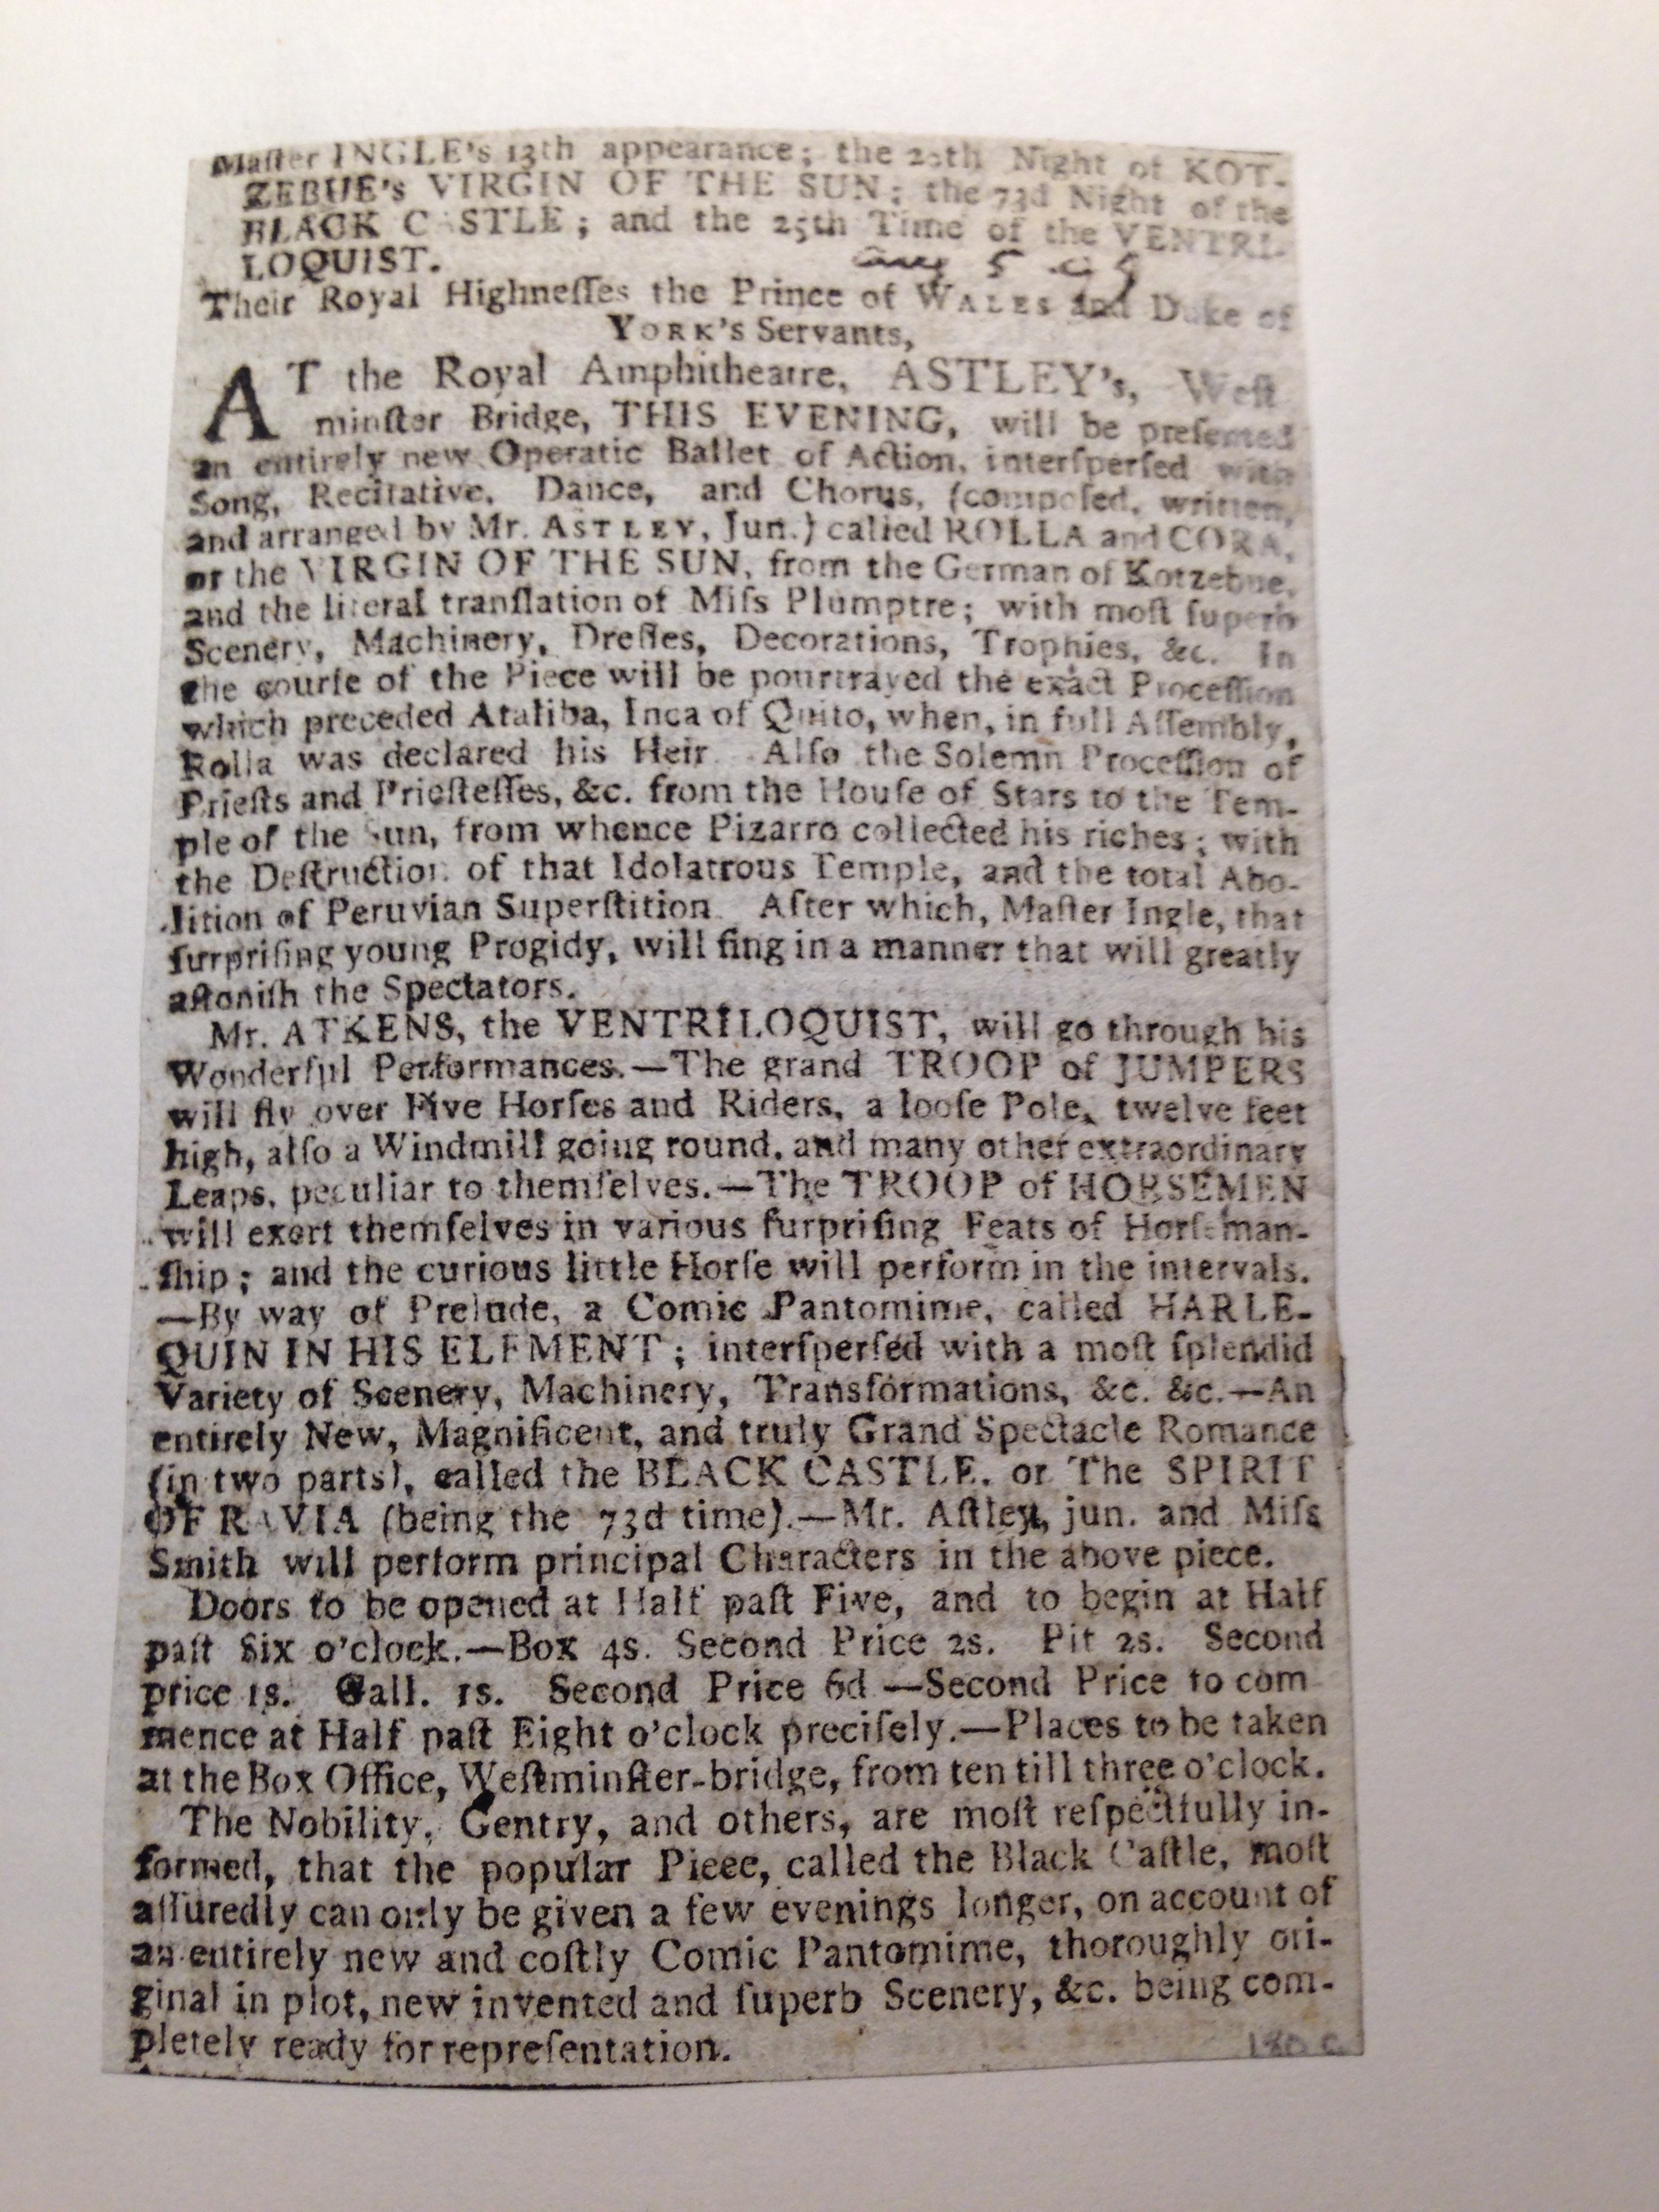 Maſter INGLE's 13th appearance; the 20th Night of KOT-
ZEBUE's VIRGIN OF THE SUN; the 73d Night of the
BLACK CASTLE; and the 25th Time of the VENTRI-
LOQUIST.
Their Royal Highneſſes the Prince of WALES and Duke of
YORK's Servants,
AT the Royal Amphitheatre, ASTLEY's, Weſt
minſter Bridge, THIS EVENING, will be preſented
an entirely new Operatic Ballet of Action, interſperſed with
Song, Recitative, Dance, and Chorus, (compoſed, written,
and arranged by Mr. ASTLEY, Jun.) called ROLLA and CORA,
or the VIRGIN OF THE SUN, from the German of Kotzebue,
and the literal tranſlation of Miſs Plumptre; with moſt ſuperb
Scenery, Machinery, Dreſſes, Decorations, Trophies, &c. In
the courſe of the Piece will be pourtrayed the exact Proceſſion
which preceded Ataliba, Inca of Quito, when, in full Aſſembly,
Rolla was declared his Heir. Alſo the Solemn Proceſſion of
Prieſts and Prieſteſſes, &c. from the Houſe of Stars to the Tem-
ple of the Sun, from whence Pizarro collected his riches; with
the Deſtruction of that Idolatrous Temple, and the total Abo-
lition of Peruvian Superſtition. After which, Maſter Ingle, that
ſurpriſing young Progidy, will ſing in a manner that will greatly
aſtoniſh the Spectators.
Mr. ATKENS, the VENTRILOQUIST, will go through his
Wonderful Performances.—The grand TROOP of JUMPERS
will fly over Five Horſes and Riders, a looſe Pole, twelve feet
high, alſo a Windmill going round, and many other extraordinary
Leaps, peculiar to themſelves.—The TROOP of HORSEMEN
will exert themſelves in various ſurpriſing Feats of Horſeman-
ſhip; and the curious little Horſe will perform in the intervals.
—By way of Prelude, a Comic Pantomime, called HARLE-
QUIN IN HIS ELEMENT; interſperſed with a moſt ſplendid
Variety of Scenery, Machinery, Transformations, &c. &c.—An
entirely New, Magnificent, and truly Grand Spectacle Romance
(in two parts), called the BLACK CASTLE, or The SPIRIT
OF RAVIA (being the 73d time).—Mr. Aſtley, jun. and Miſs
Smith will perform principal Characters in the above piece.
Doors to be opened at Half paſt Five, and to begin at Half
paſt Six o'clock.—Box 4s. Second Price 2s. Pit 2s. Second
price 1s. Gall. 1s. Second Price 6d —Second Price to com
mence at Half paſt Eight o'clock preciſely.—Places to be taken
at the Box Office, Weſtminſter-bridge, from ten till three o'clock.
The Nobility, Gentry, and others, are moſt reſpectfully in-
formed, that the popular Pieee, called the Black Caſtle, moſt
aſſuredly can only be given a few evenings longer, on account of
an entirely new and coſtly Comic Pantomime, thoroughly ori-
ginal in plot, new invented and ſuperb Scenery, &c. being com-
pletely ready for repreſentation.